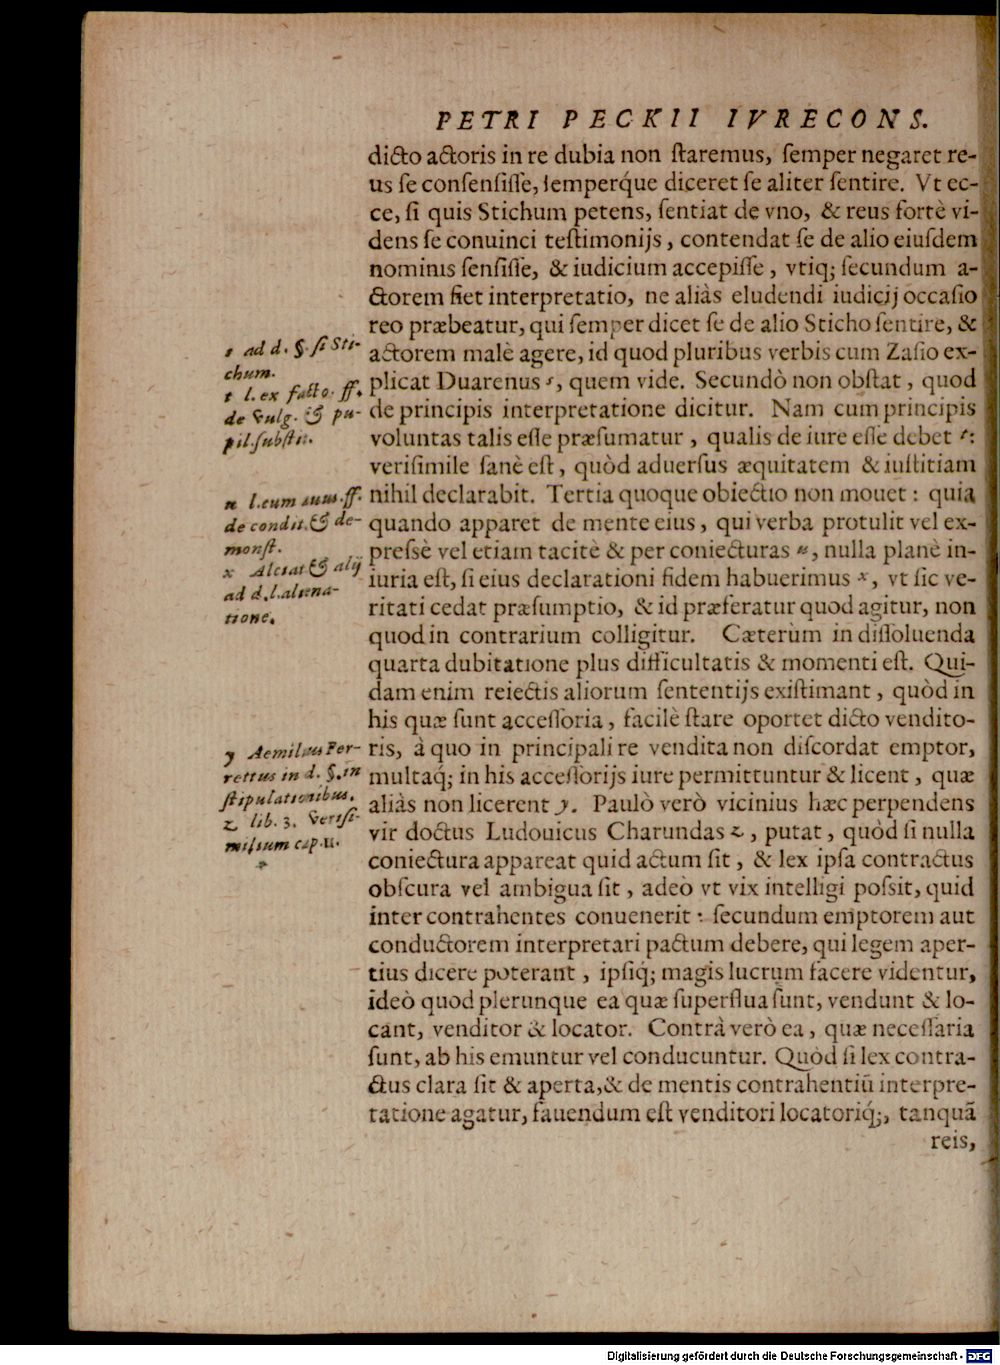 PETRI PECKII IVRECONS.
dicto actoris in re dubia non ſtaremus, ſemper negaret re-
us ſe conſenſiſſe, ſemperq́ue diceret ſe aliter ſentire. Vt ec-
ce, ſi quis Stichum petens, ſentiat de vno, & reus fortè vi-
dens ſe conuinci teſtimonijs, contendat ſe de alio eiuſdem
nominis ſenſiſſe, & iudicium accepiſſe, vtiq; ſecundum a-
ctorem fiet interpretatio, ne aliàs eludendi iudicij occaſio
reo præbeatur, qui ſemper dicet ſe de alio Sticho ſentire, &
actorem malè agere, id quod pluribus verbis cum Zaſio ex-
plicat Duarenus s, quem vide. Secundò non obſtat, quod
de principis interpretatione dicitur. Nam cum principis
voluntas talis eſſe præſumatur, qualis de iure eſſe debet t:
veriſimile ſanè eſt, quòd aduerſus æquitatem & iuſtitiam
nihil declarabit. Tertia quoque obiectio non mouet: quia
quando apparet de mente eius, qui verba protulit vel ex-
preſsè vel etiam tacitè & per coniecturas u, nulla planè in-
iuria eſt, ſi eius declarationi fidem habuerimus x, vt ſic ve-
ritati cedat præſumptio, & id præferatur quod agitur, non
quod in contrarium colligitur. Cæterùm in diſſoluenda
quarta dubitatione plus difficultatis & momenti eſt. Qui-
dam enim reiectis aliorum ſententijs exiſtimant, quòd in
his quæ ſunt acceſſoria, facilè ſtare oportet dicto vendito-
ris, à quo in principali re vendita non diſcordat emptor,
multaq́; in his acceſſorijs iure permittuntur & licent, quæ
aliàs non licerent y. Paulò verò vicinius hæc perpendens
vir doctus Ludouicus Charundas z, putat, quòd ſi nulla
coniectura appareat quid actum ſit, & lex ipſa contractus
obſcura vel ambigua ſit, adeò vt vix intelligi poſsit, quid
inter contrahentes conuenerit: ſecundum emptorem aut
conductorem interpretari pactum debere, qui legem aper-
tius dicere poterant, ipſiq́; magis lucrum facere videntur,
ideò quod plerunque ea quæ ſuperflua ſunt, vendunt & lo-
cant, venditor & locator. Contrà verò ea, quæ neceſſaria
ſunt, ab his emuntur vel conducuntur. Quòd ſi lex contra-
ctus clara ſit & aperta, & de mentis contrahentiū interpre-
tatione agatur, fauendum eſt venditori locatoriq́;, tanquã
reis,
s ad d. §. ſi Sti-
chum.
t l. ex facto. ff.
de Vulg. & pu-
pil. ſubſtit.
u l. eum auus. ff.
de condit. & de-
monſt.
x Alciat & alij
ad d. l. aliena-
tione.
y Aemilius Fer-
rettus in d. §. in
ſtipulationibus.
z lib. 3. Veriſi-
milium cap. 11.
Digitalisierung gefördert durch die Deutsche Forschungsgemeinschaft - DFG